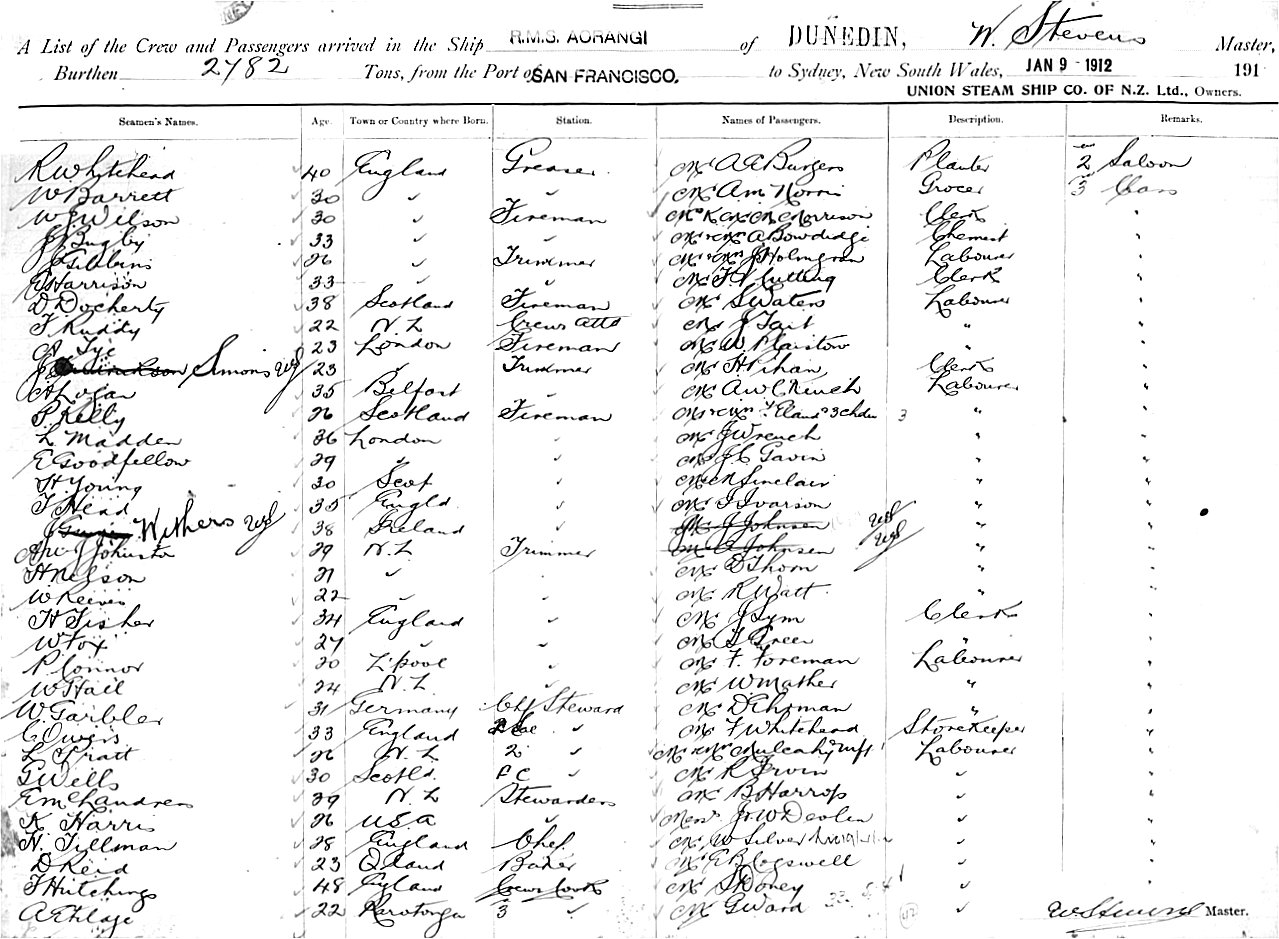 A List of the Crew and Passengers arrived in the Ship R.M.S. AORANGI of DUNEDIN, W. Stevens Master,
Burthen 2782 Tons, from the Port of SAN FRANCISCO. to Sydney, New South Wales, JAN 9 - 1912 191
UNION STEAM SHIP CO. OF N.Z. Ltd., Owners.
Seamen's Names. Age. Town or Country where Born. Station. Names of Passengers. Description. Remarks.
R Whytehead 40 England Greaser Mr A E Burgers Planter 2nd Saloon
W Barrett 30 " " Mr A M Norris Grocer 3rd Class
W J Wilson 30 " Fireman Morrison Clerk "
J Bugby 33 " " A Bowdidge Chemist "
J Gibbins 26 " Trimmer J Holmgran Labourer "
E Harrison 33 " " Mr Cutting Clerk "
D Docherty 38 Scotland Fireman Mr S Waters Labourer "
T Ruddy 22 N.Z Crews Attd Mr J Tait " "
A Tye 23 London Fireman Mr W Plaistow " "
J Simons 23 " Trimmer Mr H Pihan Clerk "
A Logan 35 Belfast " Mr A W C Kench Labourer "
P Kelly 26 Scotland Fireman Eland 3 chdn 3 " "
L Madden 36 London " Mr J Wrench " "
E Goodfellow 29 " " Mr J C Gavin " "
H Young 30 Scot " Mr N Sinclair " "
T Head 35 Engld. " Mr I Ivarson " "
J Withers 38 Ireland " Mr J Johnsen " "
J Johnston 29 N.Z Trimmer Mr A Johnsen " "
H Nelson 21 " " Mr D Thorn " "
W Reeves 22 " " Mr R Watt " "
H Fisher 34 England " Mr J Lym Clerk "
W Fox 27 " " Mr T Green " "
P Connor 30 L'pool " Mr F. Foreman Labourer "
W Hail 24 N.Z " Mr W Mather " "
W Garbler 31 Germany Chf Steward Mr D Ehrman " "
C Owens 33 England " Mr F Whitehead Storekeeper "
L Pratt 26 N.Z 2 " Mulcahy Labourer "
G Wells 30 Scotld. " Mr R Irvin " "
E McLandress 39 N.Z Stewardess Mr B Harrop " "
K Harris 26 U.S.A " J W Devlin " "
H. Tillman 28 England Chef Mr W Silver " "
D Reid 23 Qland Baker Mr E B Cogswell " "
T Hutchings 48 England Crews Cook Mr S Doney " "
A Ethlaje 22 Rarotonga 3 " Mr G Ward "
W Stevens Master.